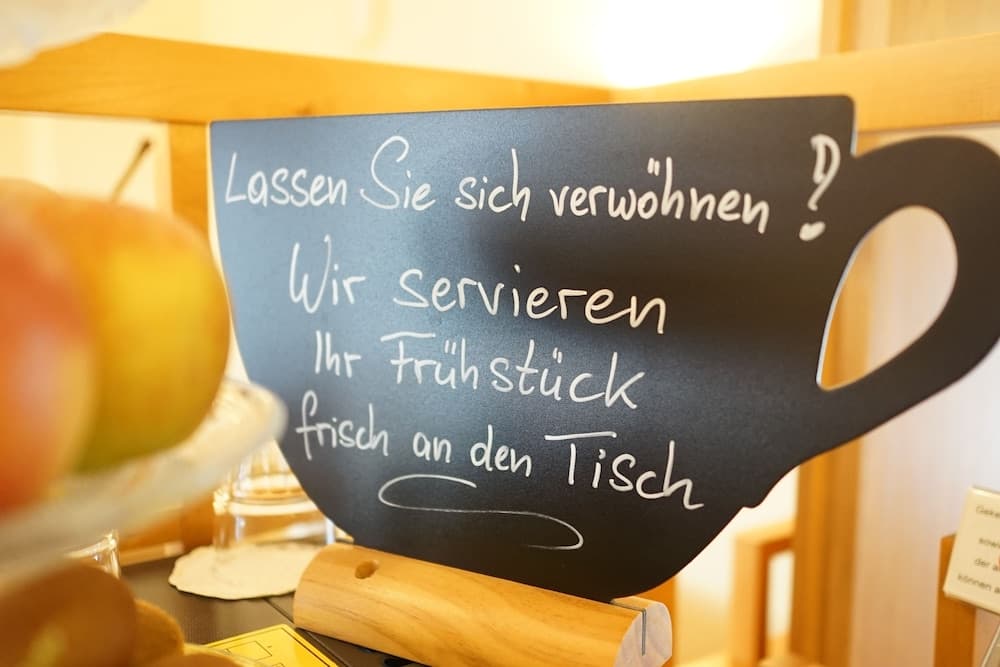 Lassen Sie sich verwöhnen!
Wir servieren
Ihr Frühstück
frisch an den Tisch
der a
können a